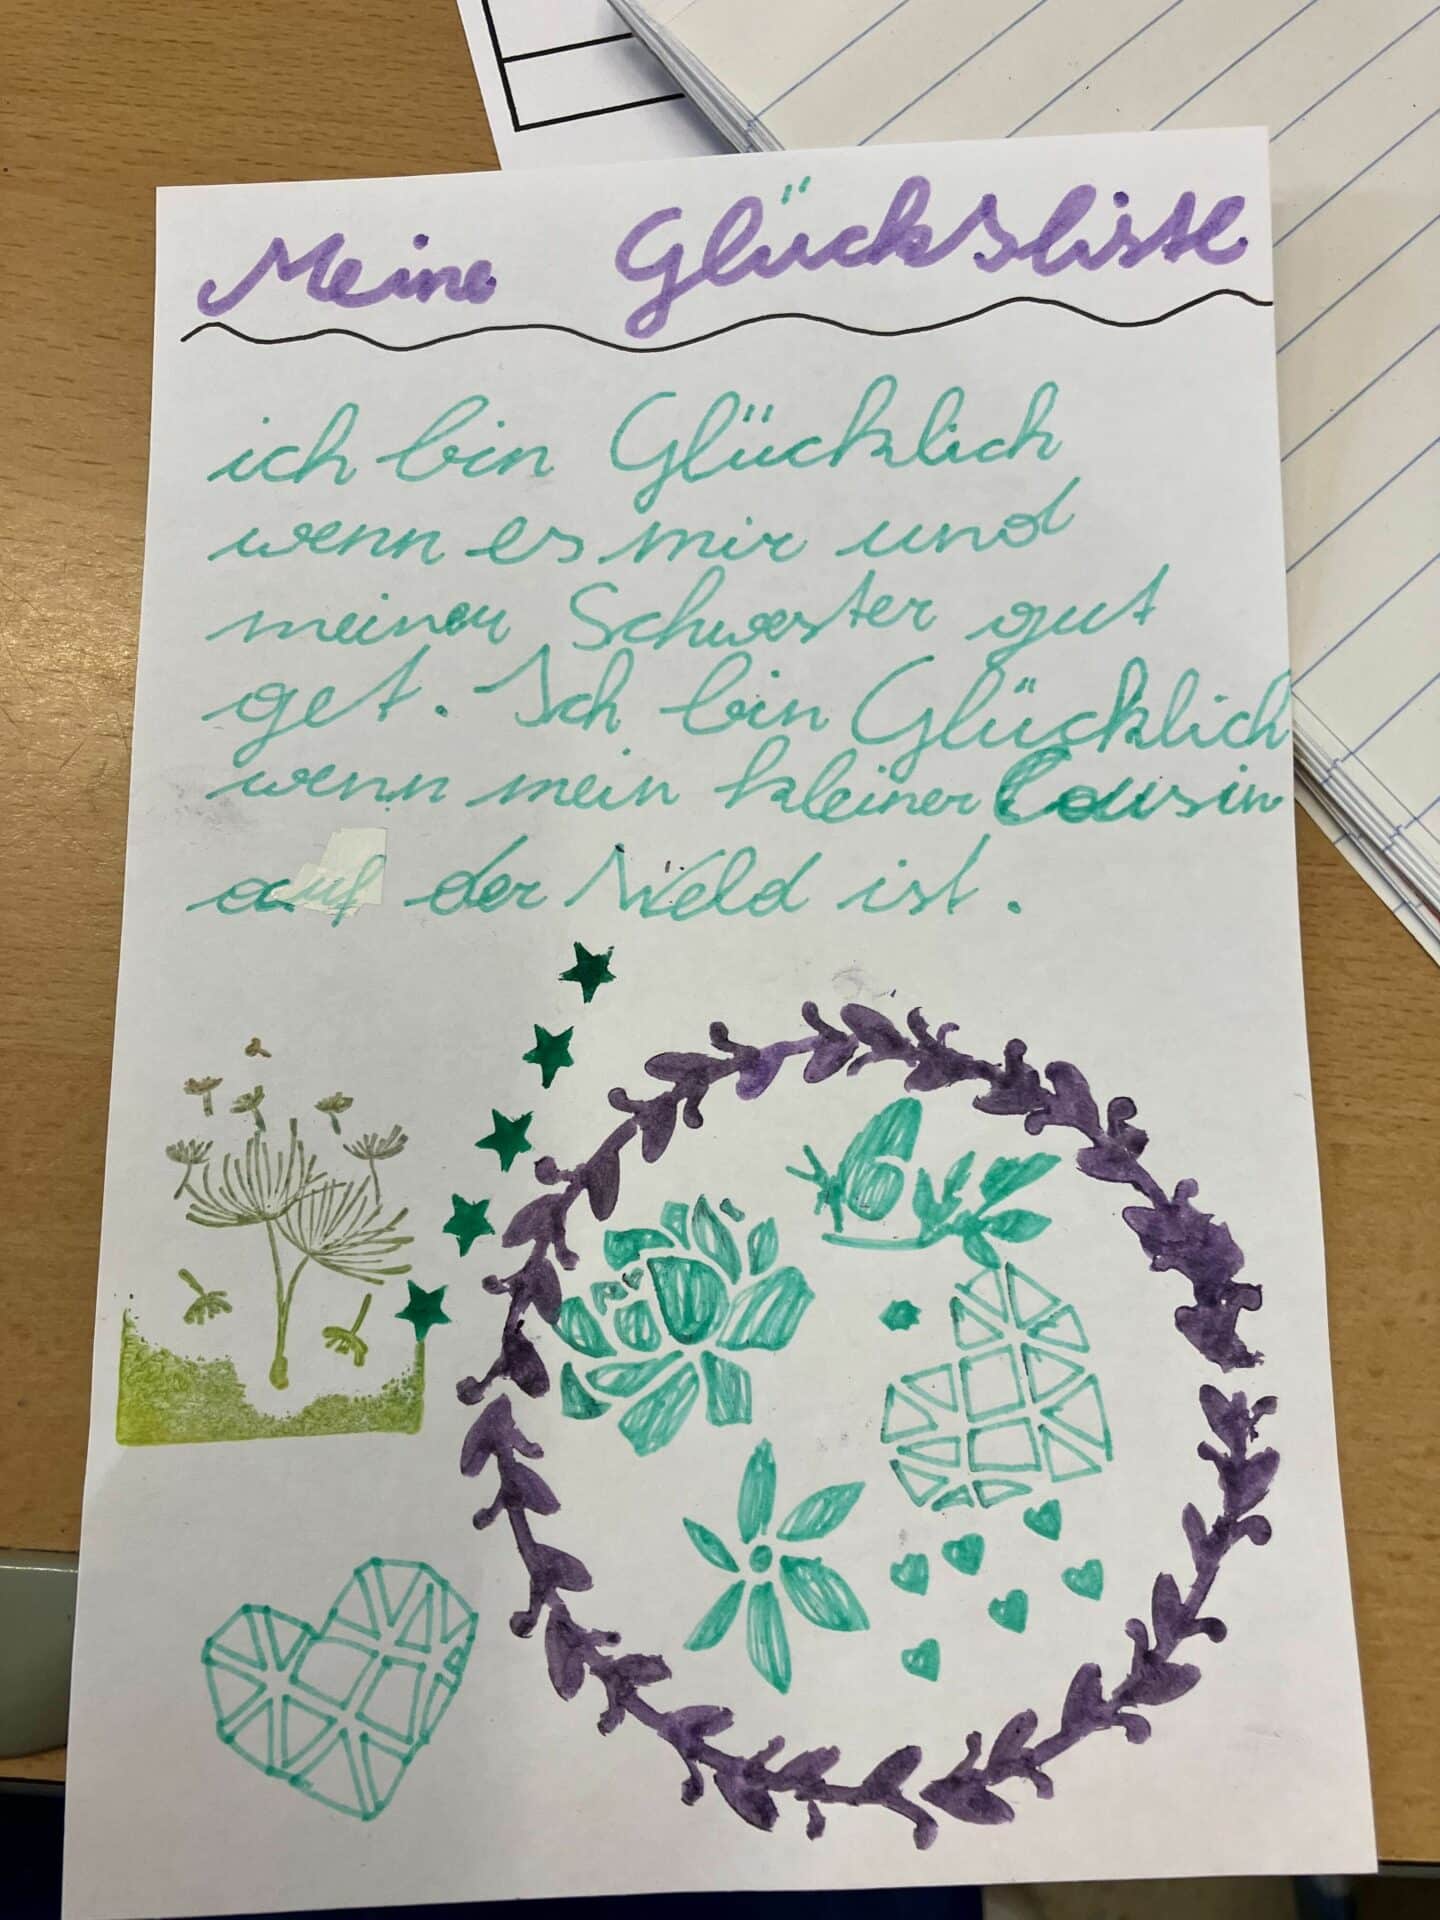 Meine Glücksliste
ich bin Glücklich
wenn es mir und
meiner Schwester gut
get. Ich bin Glücklich
wenn mein kleiner Cousin
auf der Weld ist.